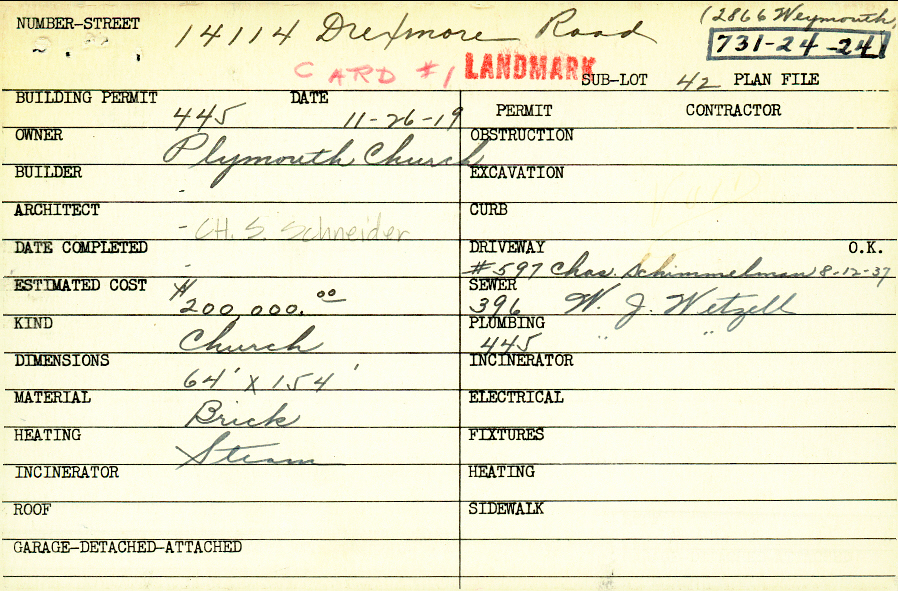 NUMBER-STREET 14114 Drexmore Road (2866 Weymouth)
731-24-24
CARD #1 LANDMARK SUB-LOT 42 PLAN FILE
BUILDING PERMIT 445 DATE 11-26-19
OWNER Plymouth Church
BUILDER -
ARCHITECT - CH. S. Schneider
DATE COMPLETED -
ESTIMATED COST $200,000.00
KIND Church
DIMENSIONS 64' x 154'
MATERIAL Brick
HEATING Steam
INCINERATOR
ROOF
GARAGE-DETACHED-ATTACHED
PERMIT CONTRACTOR
OBSTRUCTION
EXCAVATION
CURB
DRIVEWAY O.K.
#597 Chas. Schimmelman 8-12-37
SEWER
396 W. J. Wetzell
PLUMBING
445 " "
INCINERATOR
ELECTRICAL
FIXTURES
HEATING
SIDEWALK